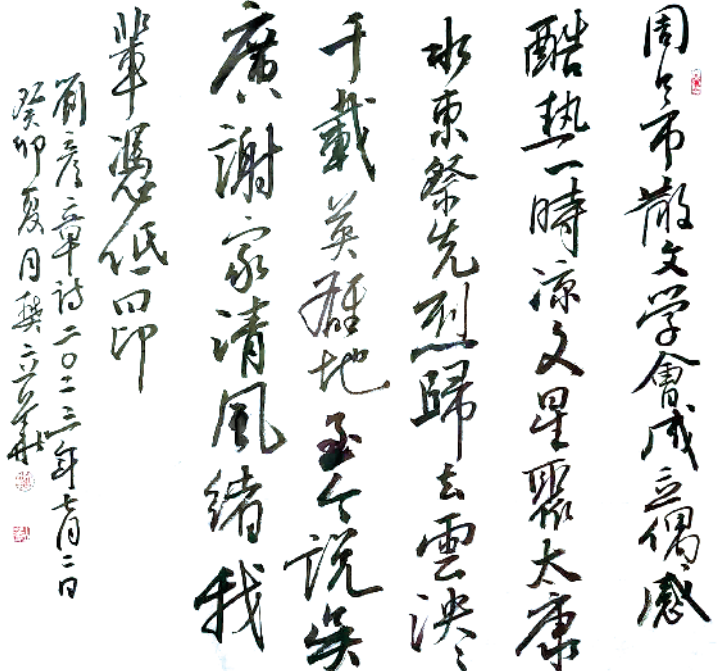 周口市散文学會成立偶感
酷熱一時凉文星聚太康
水東祭先烈歸去雲泱〻
千載英雄地至今説吴
廣謝家清風緒我
輩憑低回印
劉彦章詩二〇二三年七月二日
癸卯夏月樊立